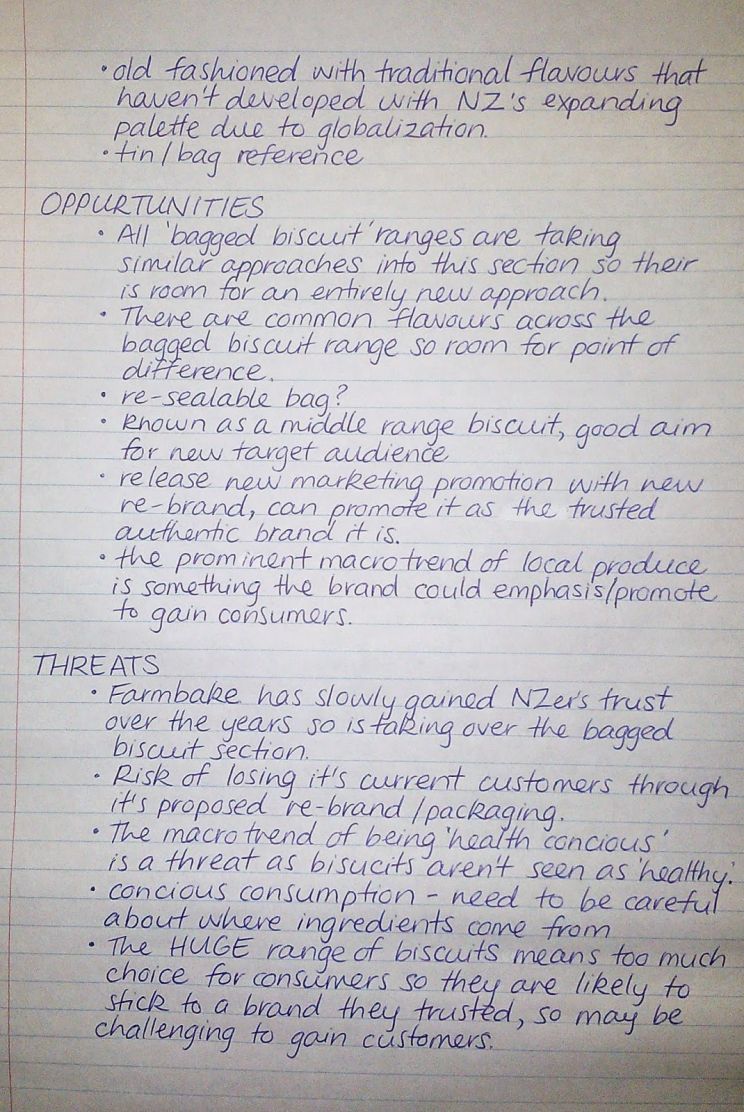 • old fashioned with traditional flavours that
haven't developed with NZ's expanding
palette due to globalization.
• tin/bag reference
OPPURTUNITIES
• All 'bagged biscuit' ranges are taking
similar approaches into this section so their
is room for an entirely new approach.
• There are common flavours across the
bagged biscuit range so room for point of
difference.
• re-sealable bag?
• known as a middle range biscuit, good aim
for new target audience
• release new marketing promotion with new
re-brand, can promote it as the trusted
authentic brand it is.
• the prominent macrotrend of local produce
is something the brand could emphasis/promote
to gain consumers.
THREATS
• Farmbake has slowly gained NZer's trust
over the years so is taking over the bagged
biscuit section.
• Risk of losing it's current customers through
it's proposed re-brand/packaging.
• The macrotrend of being 'health concious'
is a threat as bisucits aren't seen as 'healthy'.
• concious consumption - need to be careful
about where ingredients come from
• The HUGE range of biscuits means too much
choice for consumers so they are likely to
stick to a brand they trusted, so may be
challenging to gain customers.